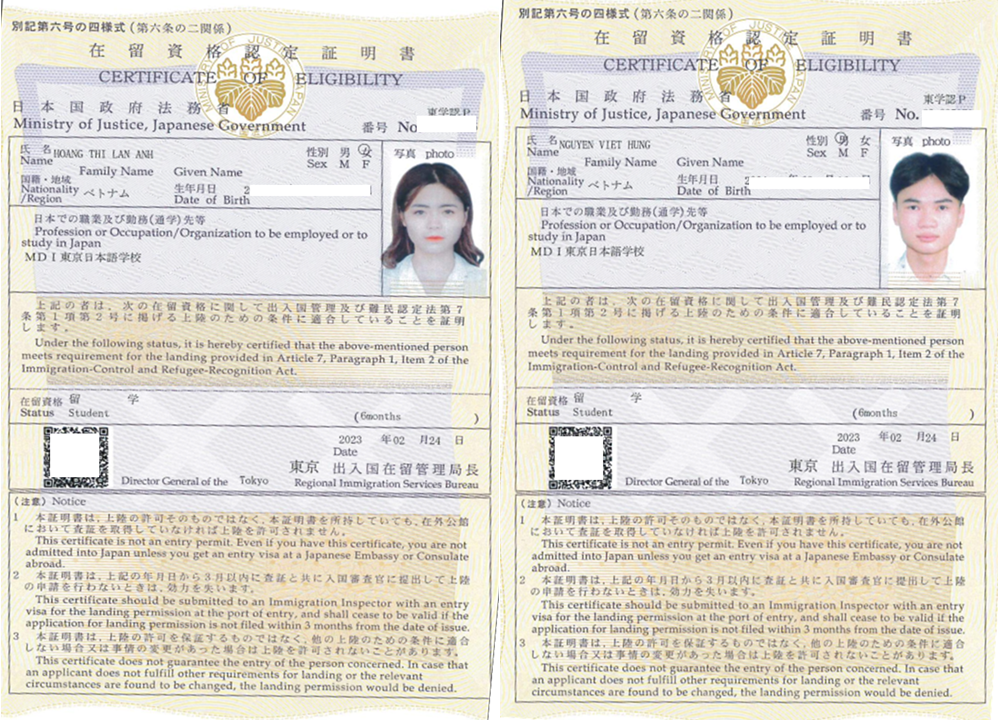 別記第六号の四様式(第六条の二関係)
在留資格認定証明書
CERTIFICATE OF ELIGIBILITY
日本国政府法務省
東学認P
Ministry of Justice, Japanese Government
番号 No.
氏名 HOANG THI LAN ANH
Name
Family Name Given Name
性別 男 女
Sex M F
写真 photo
国籍・地域
Nationality ベトナム
/Region
生年月日 2
Date of Birth
日本での職業及び勤務(通学)先等
Profession or Occupation/Organization to be employed or to
study in Japan
MDI東京日本語学校
上記の者は、次の在留資格に関して出入国管理及び難民認定法第7
条第1項第2号に掲げる上陸のための条件に適合していることを証明
します。
Under the following status, it is hereby certified that the above-mentioned person
meets requirement for the landing provided in Article 7, Paragraph 1, Item 2 of the
Immigration-Control and Refugee-Recognition Act.
在留資格 留 学
Status Student
(6months )
2023 年02 月24 日
Date
東京 出入国在留管理局長
Director General of the Tokyo Regional Immigration Services Bureau
(注意) Notice
1 本証明書は、上陸の許可そのものではなく、本証明書を所持していても、在外公館
において査証を取得していなければ上陸を許可されません。
This certificate is not an entry permit. Even if you have this certificate, you are not
admitted into Japan unless you get an entry visa at a Japanese Embassy or Consulate
abroad.
2 本証明書は、上記の年月日から3月以内に査証と共に入国審査官に提出して上陸
の申請を行わないときは、効力を失います。
This certificate should be submitted to an Immigration Inspector with an entry
visa for the landing permission at the port of entry, and shall cease to be valid if the
application for landing permission is not filed within 3 months from the date of issue.
3 本証明書は、上陸の許可を保証するものではなく、他の上陸のための条件に適合
しない場合又は事情の変更があった場合は上陸を許可されないことがあります。
This certificate does not guarantee the entry of the person concerned. In case that
an applicant does not fulfill other requirements for landing or the relevant
circumstances are found to be changed, the landing permission would be denied.
別記第六号の四様式(第六条の二関係)
在留資格認定証明書
CERTIFICATE OF ELIGIBILITY
日本国政府法務省
東学認P
Ministry of Justice, Japanese Government
番号 No.
氏名 NGUYEN VIET HUNG
Name
Family Name Given Name
性別 男 女
Sex M F
写真 photo
国籍・地域
Nationality ベトナム
/Region
生年月日
Date of Birth
日本での職業及び勤務(通学)先等
Profession or Occupation/Organization to be employed or to
study in Japan
MDI東京日本語学校
上記の者は、次の在留資格に関して出入国管理及び難民認定法第7
条第1項第2号に掲げる上陸のための条件に適合していることを証明
します。
Under the following status, it is hereby certified that the above-mentioned person
meets requirement for the landing provided in Article 7, Paragraph 1, Item 2 of the
Immigration-Control and Refugee-Recognition Act.
在留資格 留 学
Status Student
(6months )
2023 年02 月24 日
Date
東京 出入国在留管理局長
Director General of the Tokyo Regional Immigration Services Bureau
(注意) Notice
1 本証明書は、上陸の許可そのものではなく、本証明書を所持していても、在外公館
において査証を取得していなければ上陸を許可されません。
This certificate is not an entry permit. Even if you have this certificate, you are not
admitted into Japan unless you get an entry visa at a Japanese Embassy or Consulate
abroad.
2 本証明書は、上記の年月日から3月以内に査証と共に入国審査官に提出して上陸
の申請を行わないときは、効力を失います。
This certificate should be submitted to an Immigration Inspector with an entry
visa for the landing permission at the port of entry, and shall cease to be valid if the
application for landing permission is not filed within 3 months from the date of issue.
3 本証明書は、上陸の許可を保証するものではなく、他の上陸のための条件に適合
しない場合又は事情の変更があった場合は上陸を許可されないことがあります。
This certificate does not guarantee the entry of the person concerned. In case that
an applicant does not fulfill other requirements for landing or the relevant
circumstances are found to be changed, the landing permission would be denied.